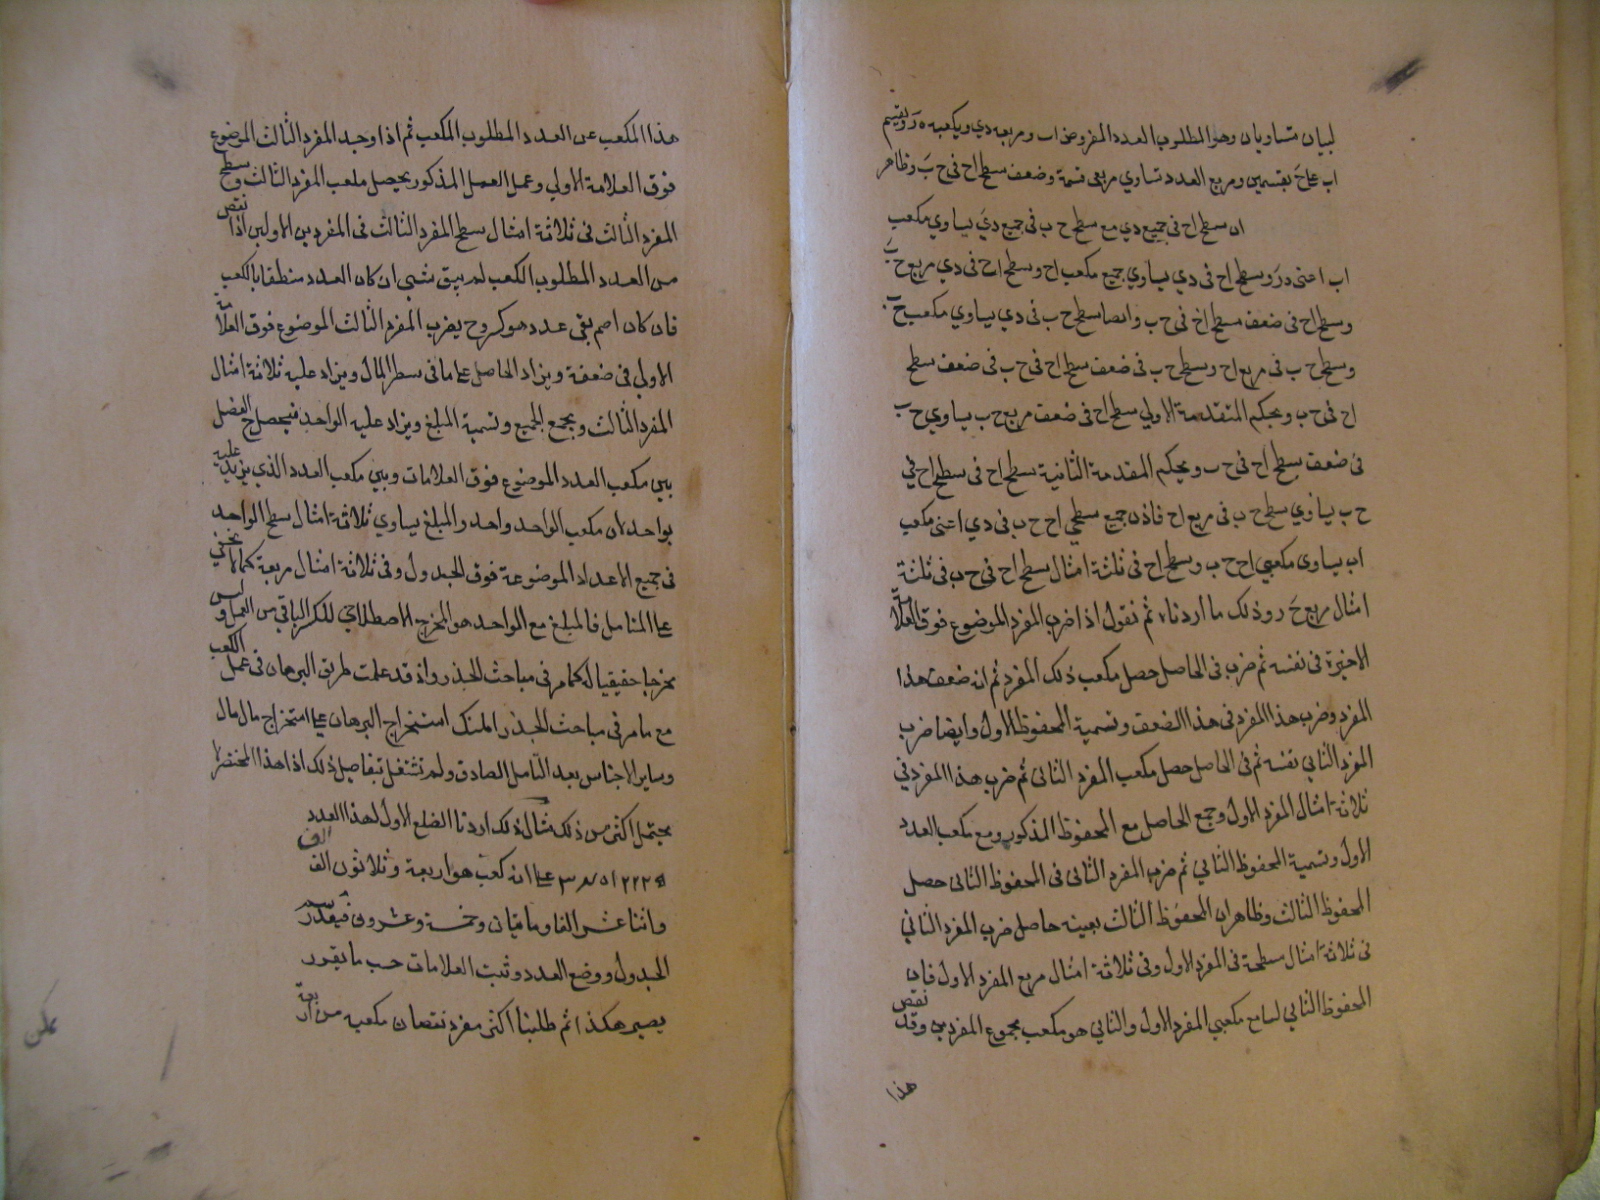 لبيان متساويان وهو المطلوب العدد المفروض اب ومربعه دي ويكعبه ه ر ونقسم
اب على ح بقسمين ومربع العدد تساوي مربعي قسمة وضعف سطح اح في ح ب وظاهر
ان سطح اح في جميع دي مع سطح ح ب في جميع دي يساوي مكعب
اب اعنى ه ر وسطح اح في دي يساوي جميع مكعب اح وسطح اح في دي مربع ح ب
وسطح اح في ضعف سطح اح في ح ب وايضا سطح ح ب في دي يساوي مكعب ح ب
وسطح ح ب في مربع اح وسطح ح ب في ضعف سطح اح في ح ب في ضعف سطح
اح في ح ب وبحكم المتقدمة الاولي سطح اح في ضعف مربع ح ب يساوي ح ب
في ضعف سطح اح في ح ب وبحكم المقدمة الثانية سطح اح في سطح اح في
ح ب يساوي سطح ح ب في مربع اح فاذن جميع سطحي اح ح ب في دي اعنى مكعب
اب يساوى مكعبي اح ح ب وسطح اح في ثلثة امثال سطح اح في ح ب في ثلثة
امثال مربع ح ر وذلك ما اردناه ثم نقول اذا ضرب المفرد الموضوع فوق العلامة
الاخيرة في نفسه ثم ضرب في الحاصل حصل مكعب ذلك المفرد ثم انه ضعف هذا
المفرد وضرب هذا المفرد في هذا الضعف ونسمية المحفوظ الاول وايضا ضرب
المفرد الثاني نفسه ثم في الحاصل حصل مكعب المفرد الثانى ثم ضرب هذا المفرد في
ثلاثة امثال المفرد الاول وجمع الحاصل مع المحفوظ المذكور ومع مكعب العدد
الاول ونسمية المحفوظ الثاني ثم ضرب المفرد الثانى في المحفوظ الثانى حصل
المحفوظ الثالث وظاهر ان المحفوظ الثالث بعينه حاصل ضرب المفرد الثاني
في ثلاثة امثال سطحة في المفرد الاول وفي ثلاثة امثال مربع المفرد الاول فان
المحفوظ الثاني لسامع مكعبي المفرد الاول والثاني هو مكعب مجموع المفردين وقد نقص
هذا
هذا المكعب عن العدد المطلوب المكعب ثم اذا وجد المفرد الثالث الموضوع
فوق العلامة الاولي وعمل العمل المذكور يحصل مكعب المفرد الثالث وسطح
المفرد الثالث في ثلاثة امثال سطح المفرد الثالث في المفردين الاولين اذا نقص
من العدد المطلوب الكعب لم يبق شىء ان كان العدد منطقا بالكعب
فان كان اصم بقى عدد هو كروح يضرب المفرد الثالث الموضوع فوق العلامة
الاولي في ضعفة ويزاد الحاصل على ما في سطر المال ويزاد عليه ثلاثة امثال
المفرد الثالث ويجمع الجميع ونسمية المبلغ ويزاد عليه الواحد فيحصل ح الفضل
بين مكعب العدد الموضوع فوق العلامات وبين مكعب العدد الذي يزيد عليه
بواحد لان مكعب الواحد واحد والمبلغ يساوي ثلاثة امثال سطح الواحد
في جميع الاعداد الموضوعة فوق الجدول وفي ثلاثة امثال مربعة كما لا يخفى
على المتامل فالمبلغ مع الواحد هو المخرج الاصطلاحي للكسر الباقي من العمل وليس
مخرجا حقيقيا له كما مر في مباحث الجذر واذ قد علمت طريق البرهان في عمل الكعب
مع ما مر في مباحث الجذر امكنك استخراج البرهان على استخراج مال مال
وساير الاجناس بعد التامل الصادق ولم نشتغل بتفاصيل ذلك اذ هذا المختصر لا
يحتمل اكثر من ذلك مثال ذلك اردنا الضلع الاول لهذا العدد
على انه كعب هو اربعة وثلاثون الف الف
واثنا عشر الفا ومأتان وخمسة وعشرون فيقدر
الجدول ووضع العدد وثبت العلامات حسب ما تقرر
يصير هكذا ثم طلبنا اكثر مفرد نقصان مكعبه من اربعة